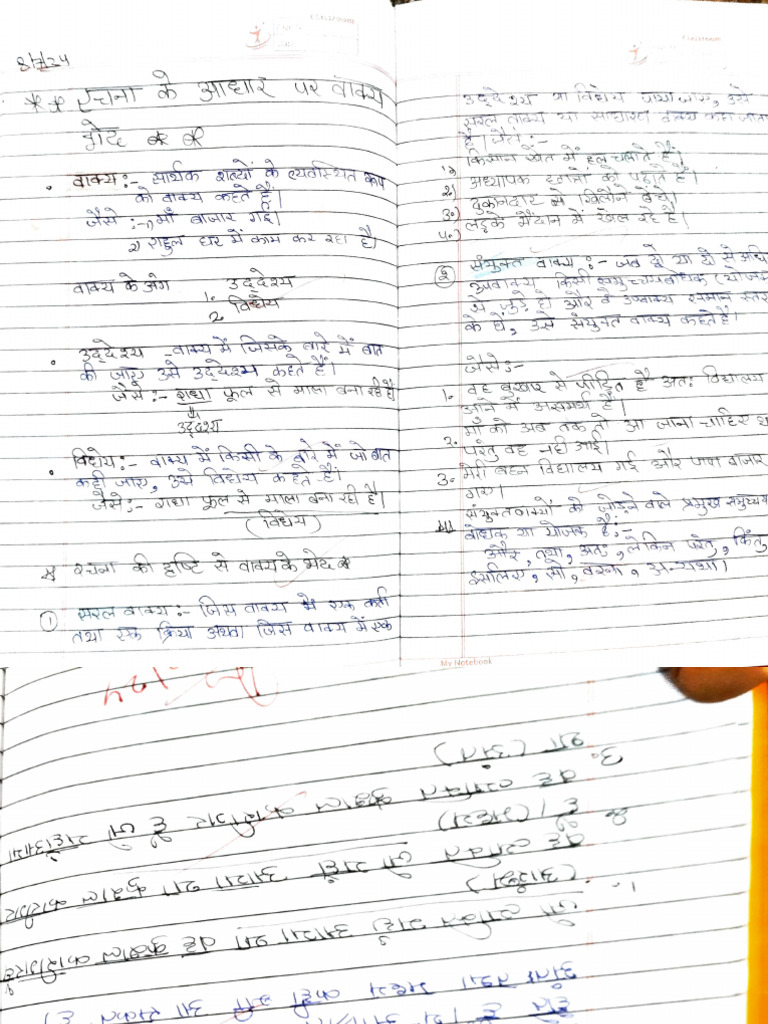 8/7/24
** रचना के आधार पर वाक्य
भेद **
• वाक्य :- सार्थक शब्दों के व्यवस्थित रूप
को वाक्य कहते हैं।
जैसे :- 1) माँ बाजार गई।
2) राहुल घर में काम कर रहा है।
वाक्य के अंग उद्देश्य
1.
2. विधेय
• उद्देश्य - वाक्य में जिसके बारे में बात
की जाए उसे उद्देश्य कहते हैं।
जैसे :- राधा फूल से माला बना रही है
उद्देश्य
• विधेय :- वाक्य में किसी के बारे में जो बात
कही जाए, उसे विधेय कहते हैं।
जैसे :- राधा फूल से माला बना रही है।
(विधेय)
* रचना की दृष्टि से वाक्य के भेद *
① सरल वाक्य :- जिस वाक्य में एक कर्ता
तथा एक क्रिया अथवा जिस वाक्य में एक
उद्देश्य या विधेय पाया जाए, उसे
सरल वाक्य या साधारण वाक्य कहा जाता
है। जैसे :-
1) किसान खेत में हल चलाते हैं।
2) अध्यापक छात्रों को पढ़ाते हैं।
3) दुकानदार ने खिलौने बेचे।
4) लड़के मैदान में खेल रहे हैं।
② संयुक्त वाक्य :- जब दो या दो से अधि
उपवाक्य किसी समुच्चयबोधक (योज
से जुड़े हो और वे उपवाक्य समान स्तर
के हों, उसे संयुक्त वाक्य कहते हैं।
जैसे :-
1. वह बुखार से पीड़ित है अतः विद्यालय
आने में असमर्थ है।
2. माँ को अब तक तो आ जाना चाहिए था
परंतु वह नहीं आई।
3. मेरी बहन विद्यालय गई और पापा बाजार
गए।
संयुक्त वाक्यों को जोड़ने वाले प्रमुख समुच्चय
बोधक या योजक हैं :-
और, तथा, अतः, लेकिन परंतु, किंतु,
इसलिए, सो, वरना, अन्यथा।
My Notebook
1. जो व्यक्ति यहाँ आया था वह कुशल कारीगर
2. वह व्यक्ति जो यहाँ आया था कुशल कारीगर
है। (मध्य)
3. वह व्यक्ति कुशल कारीगर है जो यहाँ आया
था (अंत)